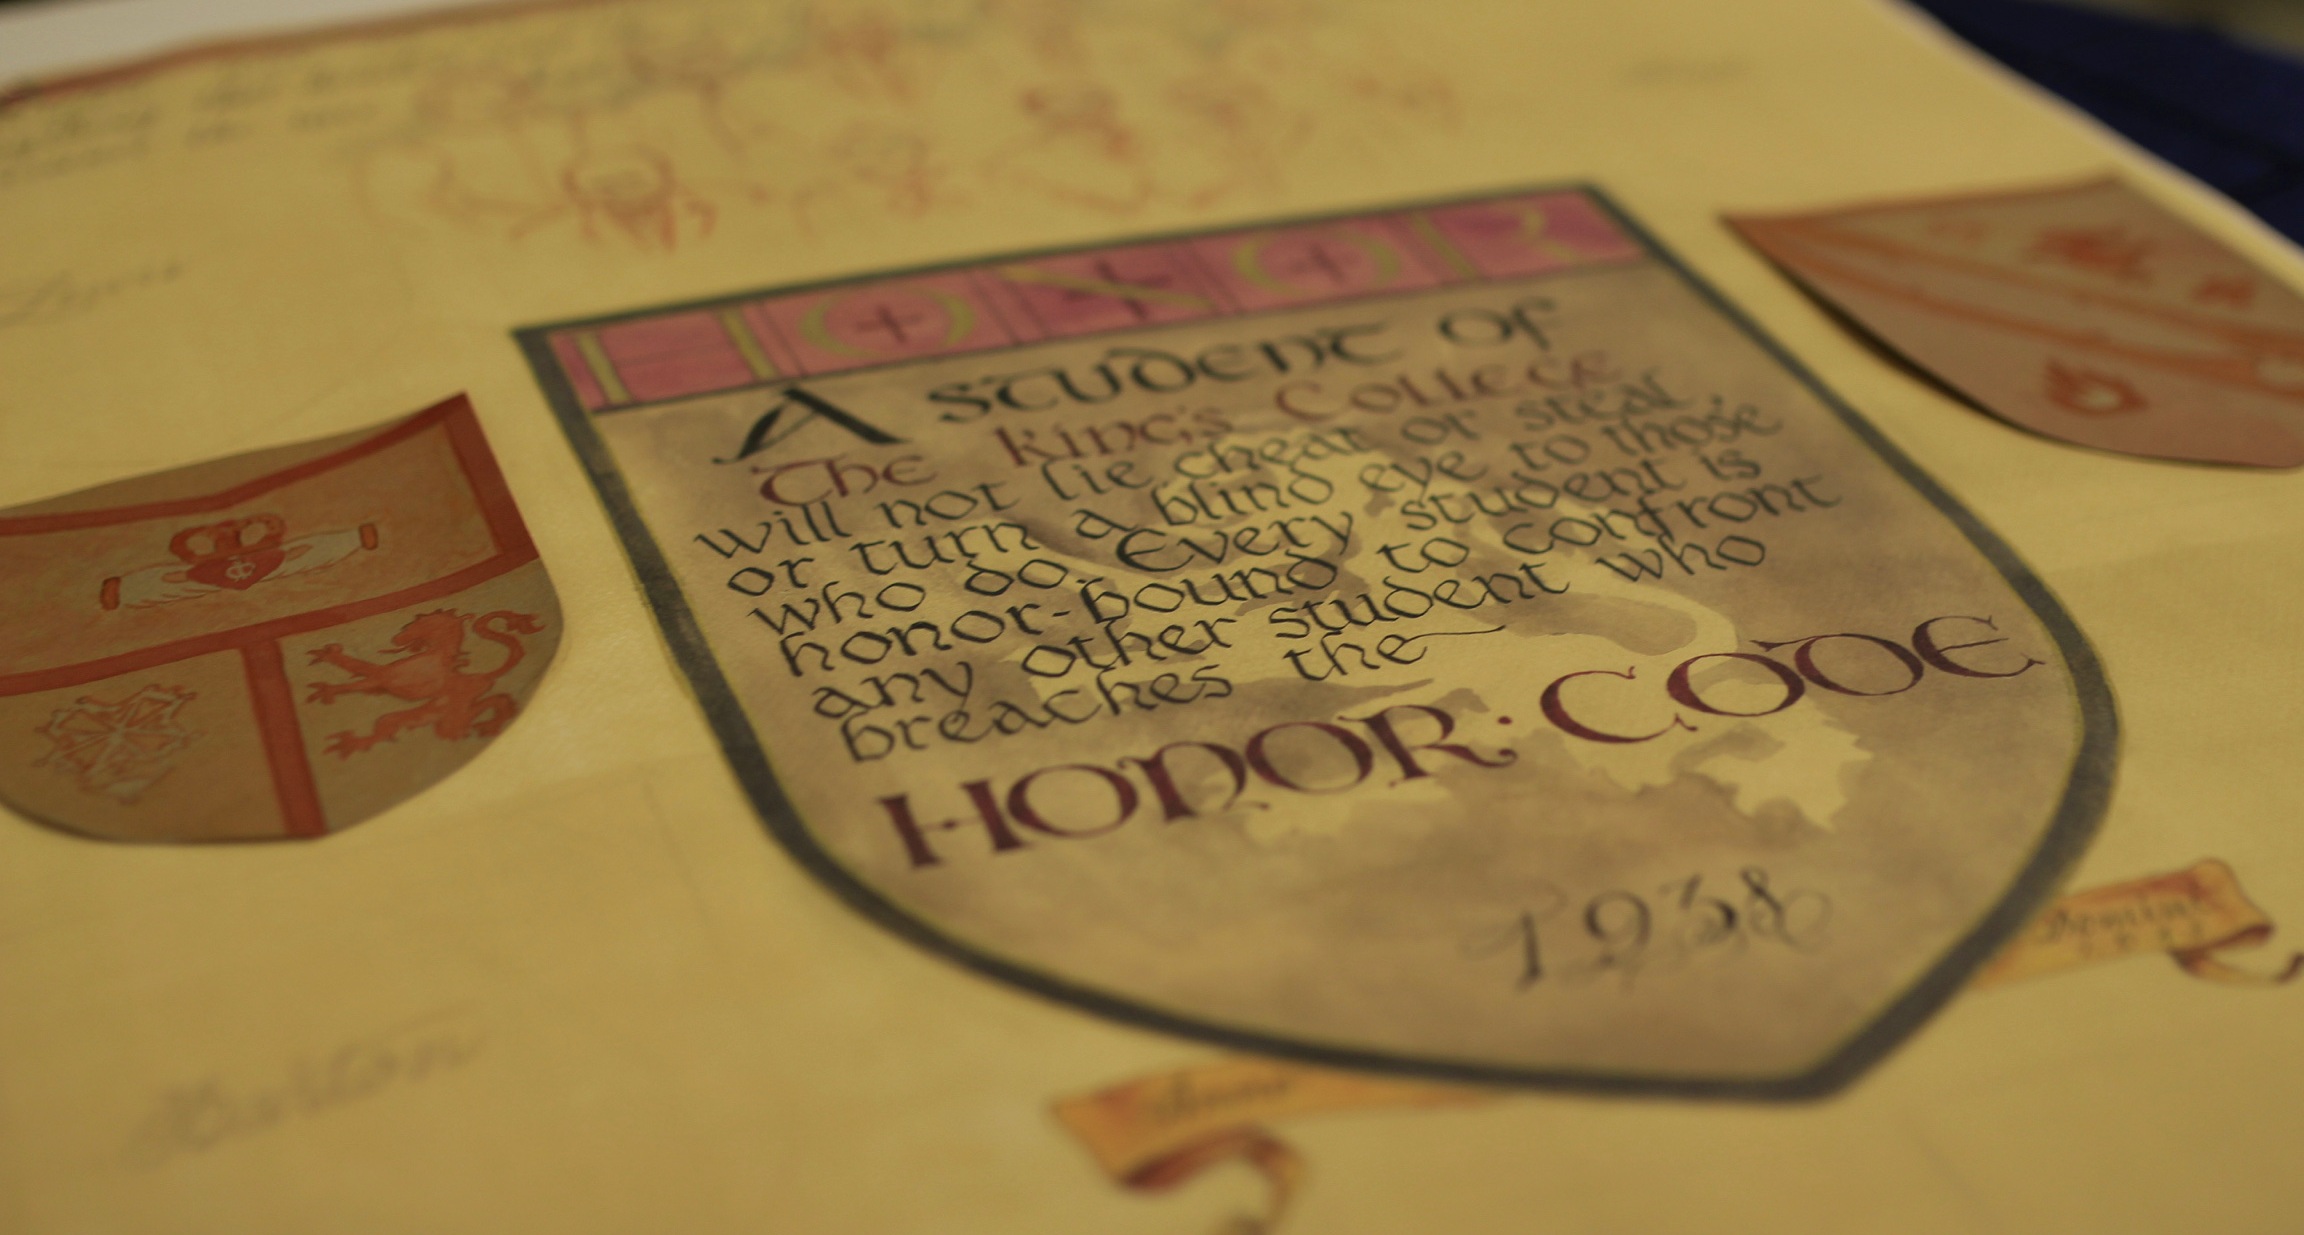 HONOR
A student of
The King's College
will not lie cheat or steal,
or turn a blind eye to those
who do. Every student is
honor-bound to confront
any other student who
breaches the
HONOR: CODE
1938